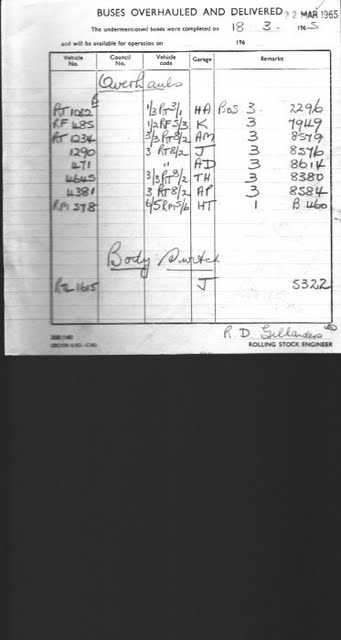 BUSES OVERHAULED AND DELIVERED 22 MAR 1965
The undermentioned buses were completed on 18 3. 1965
and will be available for operation on 196
Vehicle No. Council No. Vehicle code Garage Remarks
Overhauls
RT 1082 1/3 RT 3/1 HA Bos. 3. 2296
RF 485 1/2 RF 5/3 K 3 7949
RT 1234 3/3 RT8/2 AM 3 8579
1290 3 RT8/2 J 3 8576
471 " AD 3 8614
4645 3/3 RT8/2 TH 3 8380
4381 3 RT8/2 AP 3 8584
RM 578 6/5 RM5/6 HT 1 B 460
Body Switch
RTL 1615 J 5322
R. D. Gillanders
ROLLING STOCK ENGINEER